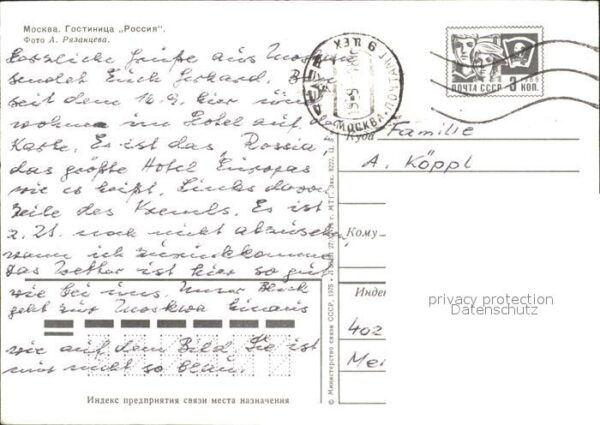 Москва. Гостиница „Россия“.
Фото А. Рязанцева.
Herzliche Grüße aus Moskau
sendet Euch Gerhard. Bin
seit dem 16.9. hier und
wohne im Hotel auf der
Karte. Es ist das „Rossia"
das größte Hotel Europas
wie es heißt. Links davon
Teile des Kremls. Es ist
z. Zt. noch nicht abzusehen,
wann ich zurückkomme.
Das Wetter ist hier so gut
wie bei uns. Unser Blick
geht zur Moskwa hinaus
wie auf dem Bild. Sie ist
nur nicht so blau.
Индекс предприятия связи места назначения
© Министерство связи СССР, 1975
МОСКВА
ПОЧТА СССР 3 КОП.
Куда
Familie
A. Köppl
Кому
Индек
402
Mei
privacy protection
Datenschutz